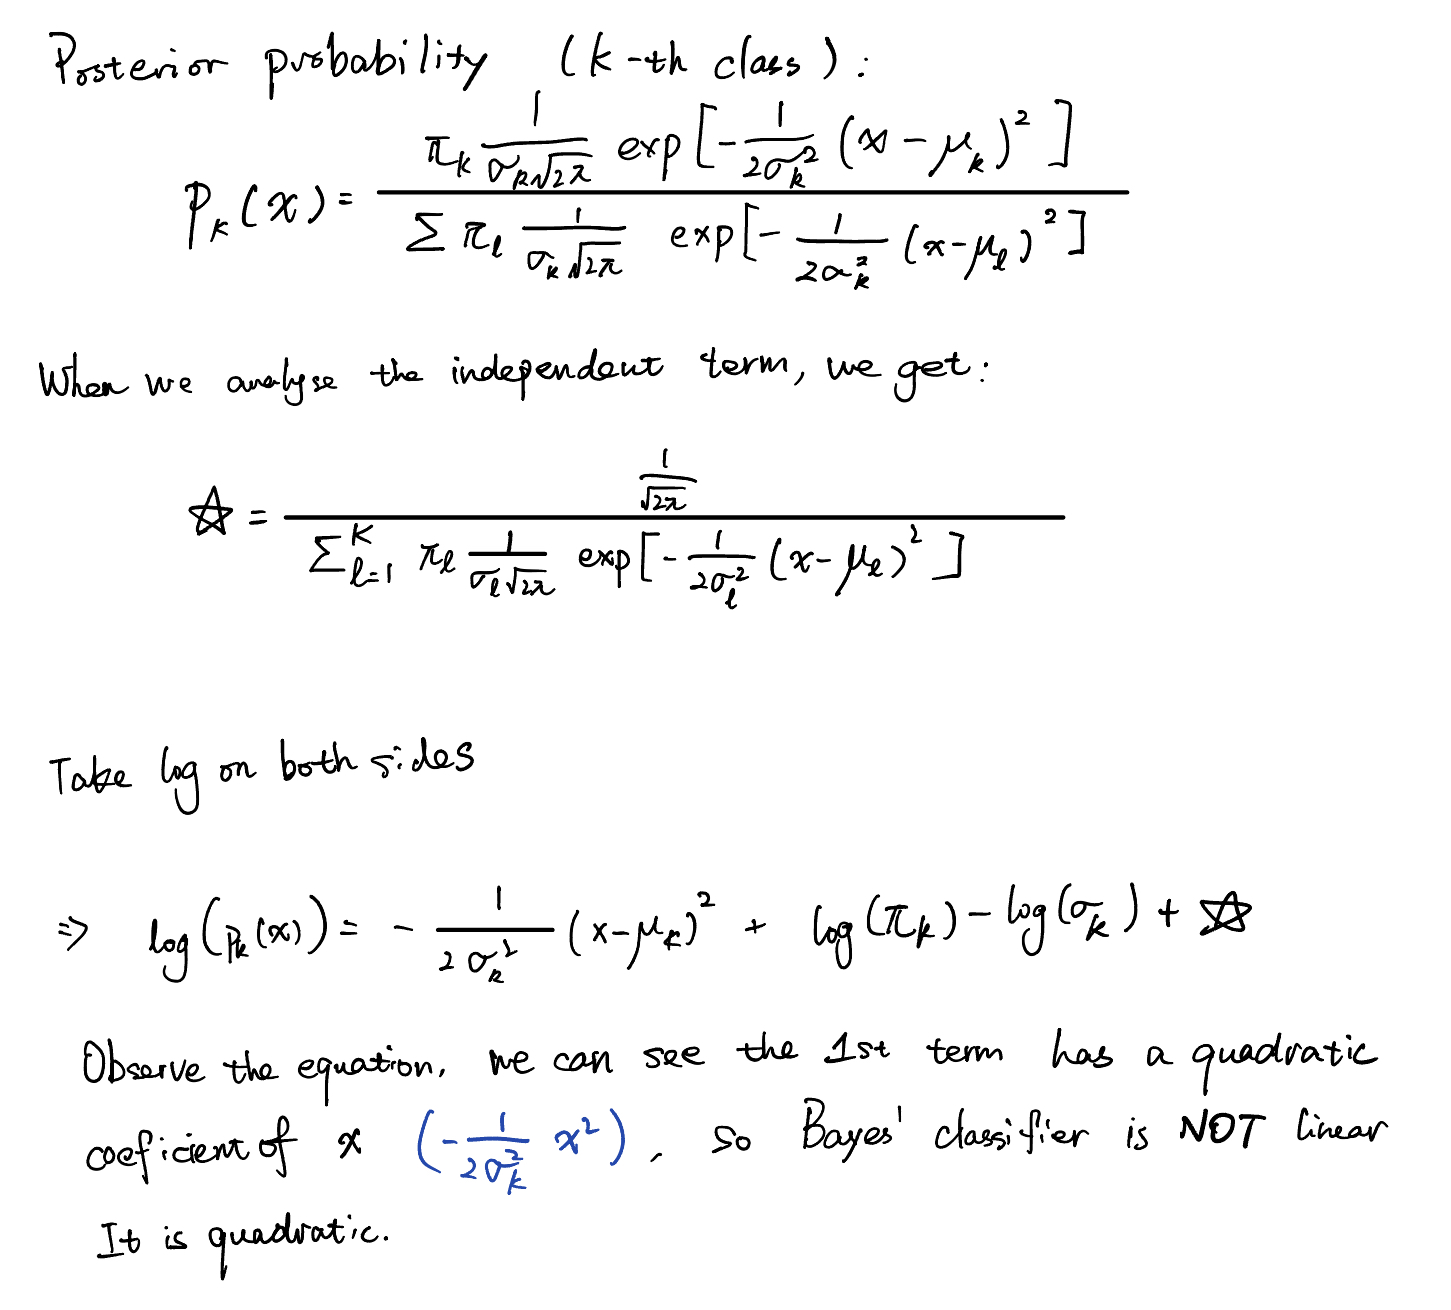 Posterior probability (k-th class):
P_k(x) = \frac{π_k \frac{1}{σ_k\sqrt{2π}} exp[-\frac{1}{2σ_k^2}(x-μ_k)^2]}{Σ π_l \frac{1}{σ_k\sqrt{2π}} exp[-\frac{1}{2σ_k^2}(x-μ_l)^2]}
When we analyse the independent term, we get:
☆ = \frac{\frac{1}{\sqrt{2π}}}{Σ_{l=1}^K π_l \frac{1}{σ_l\sqrt{2π}} exp[-\frac{1}{2σ_l^2}(x-μ_l)^2]}
Take log on both sides
⇒ log(p_k(x)) = -\frac{1}{2σ_k^2}(x-μ_k)^2 + log(π_k) - log(σ_k) + ☆
Observe the equation, we can see the 1st term has a quadratic
coeficient of x (-\frac{1}{2σ_k^2} x^2), so Bayes' classifier is NOT linear
It is quadratic.